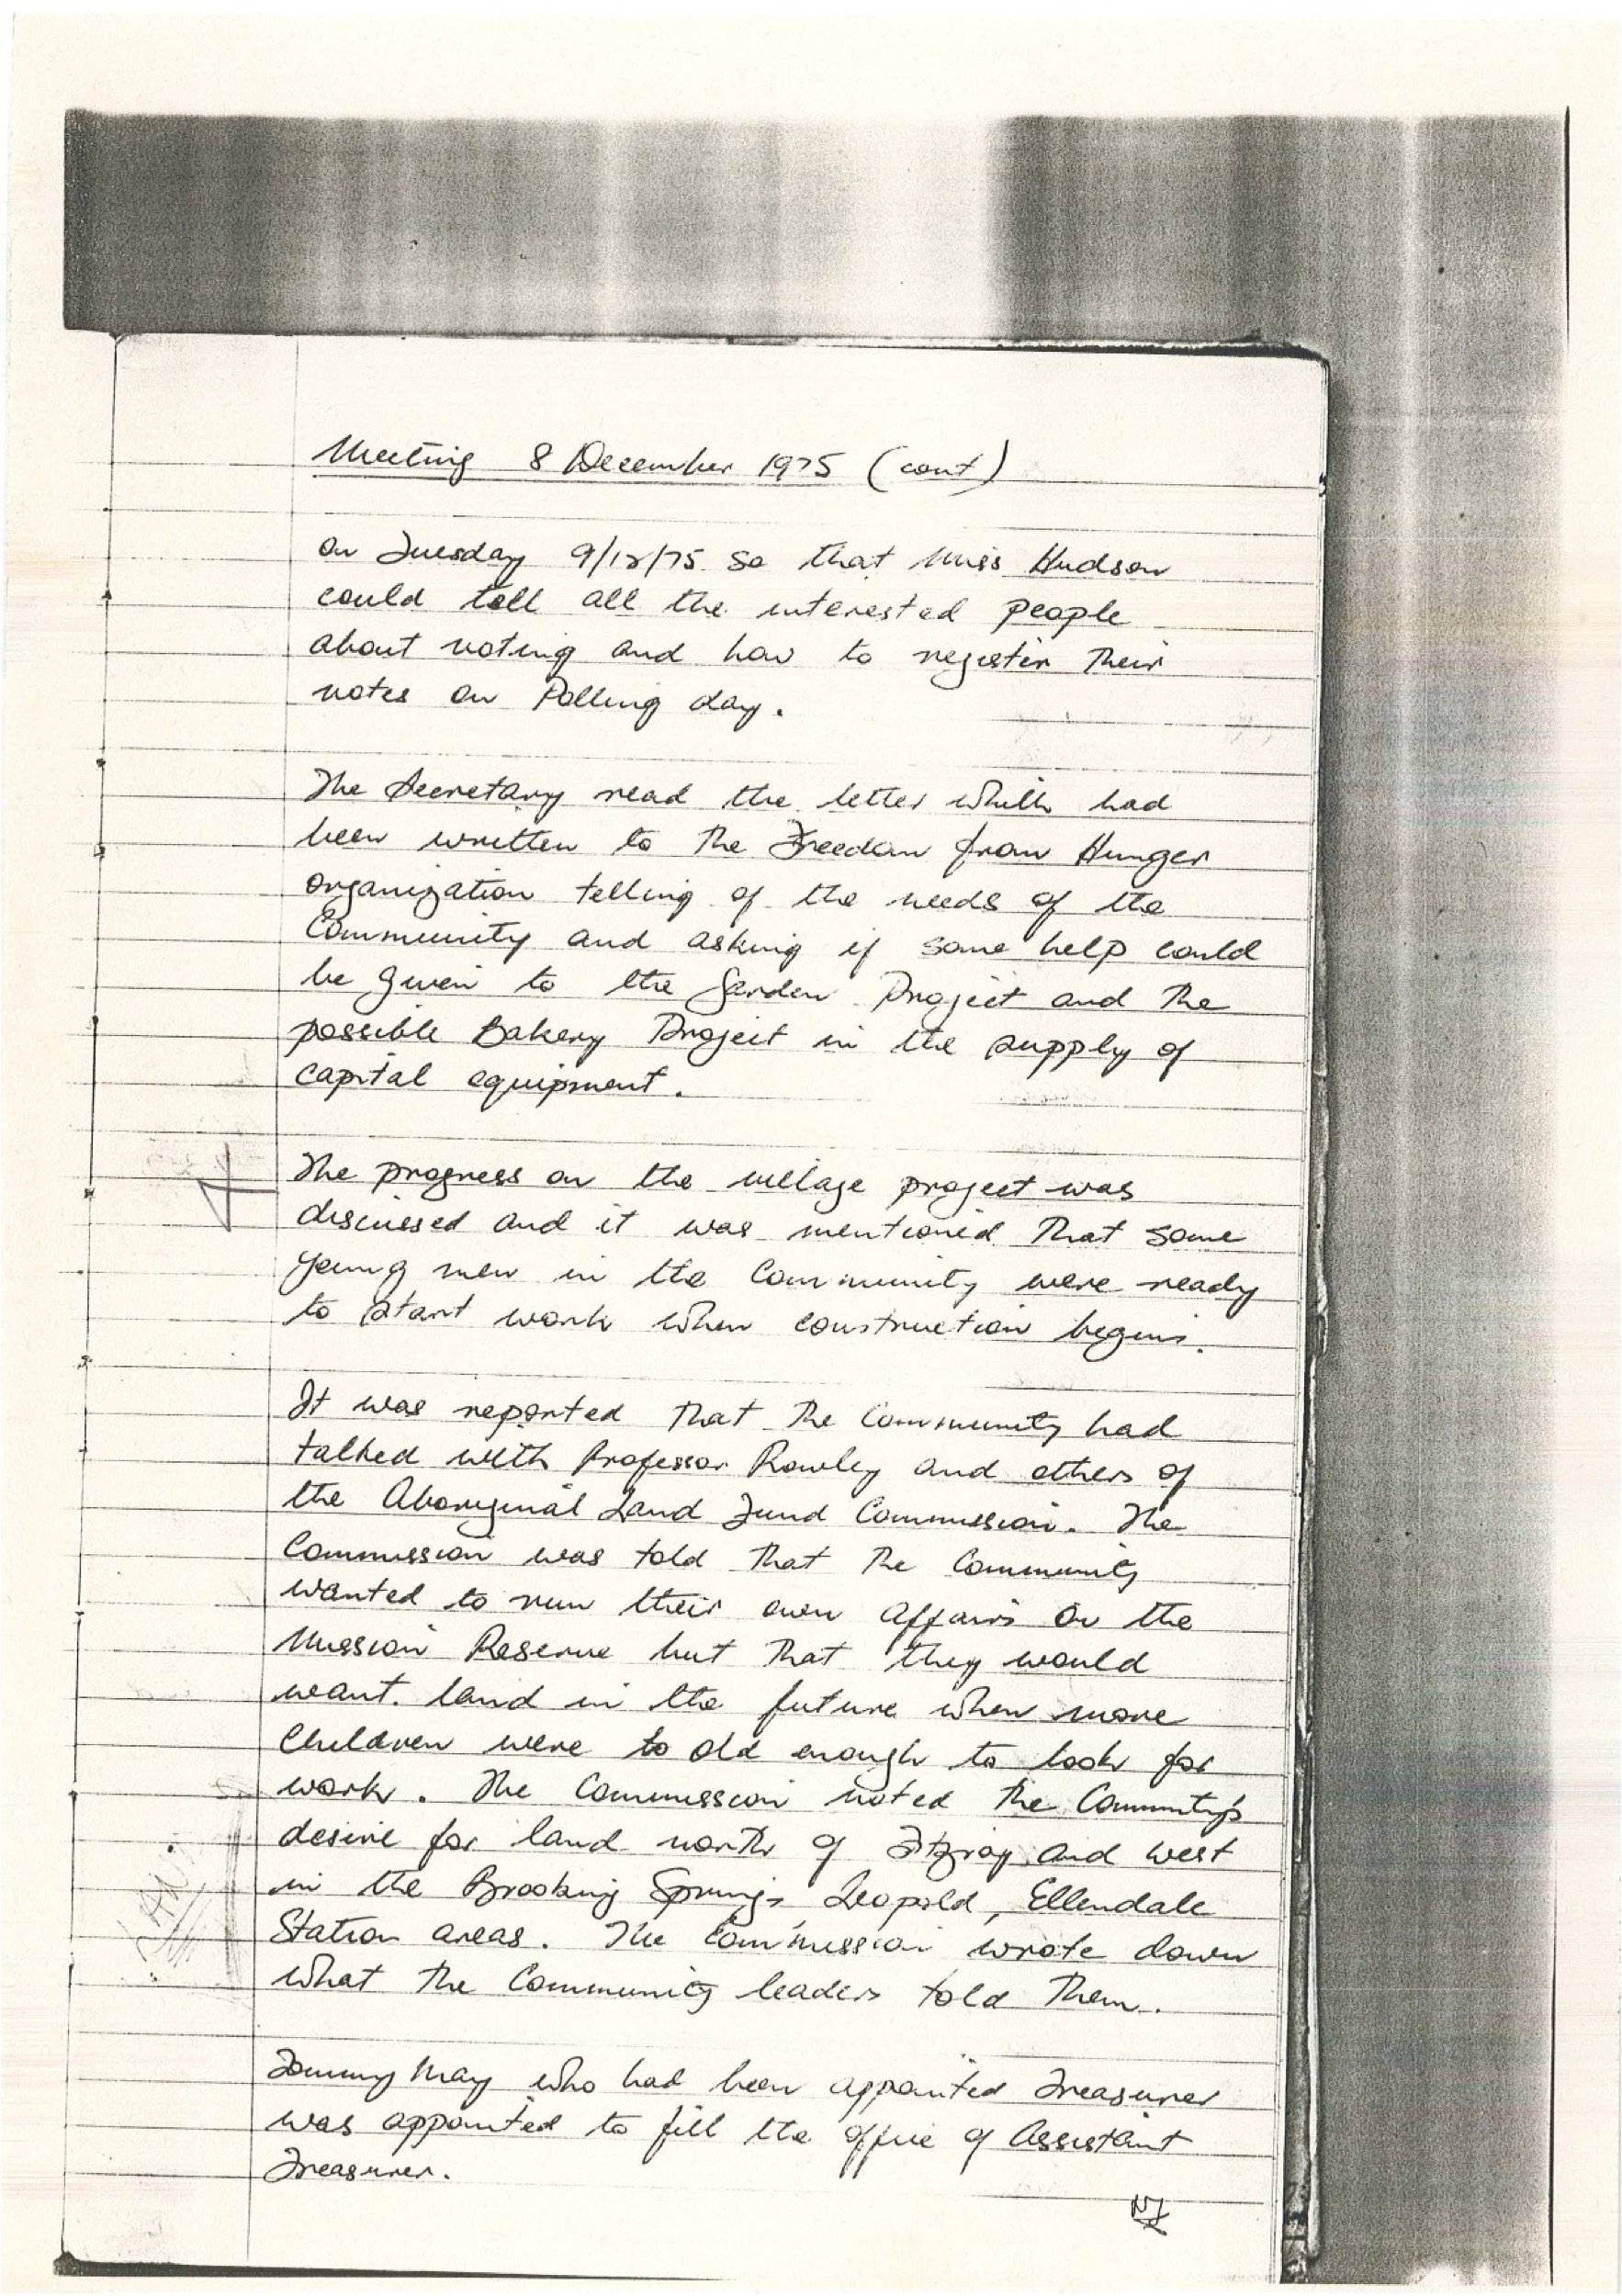 Meeting 8 December 1975 (cont)
on Tuesday 9/12/75 so that Miss Hudson
could tell all the interested people
about voting and how to register their
votes on Polling day.
The Secretary read the letter which had
been written to the Freedom from Hunger
organization telling of the needs of the
Community and asking if some help could
be given to the Garden Project and the
possible Bakery Project in the supply of
capital equipment.
The progress on the village project was
discussed and it was mentioned that some
young men in the Community were ready
to start work when construction begins.
It was reported that the Community had
talked with Professor Rowley and others of
the Aboriginal Land Fund Commission. The
Commission was told that the Community
wanted to run their own affairs on the
Mission Reserve but that they would
want land in the future when more
children were to old enough to look for
work. The Commission noted the Community's
desire for land north of Fitzroy and west
in the Brooking Springs, Leopold, Ellendale
Station areas. The Commission wrote down
what the Community leaders told them.
Tommy May who had been appointed Treasurer
was appointed to fill the office of Assistant
Treasurer.